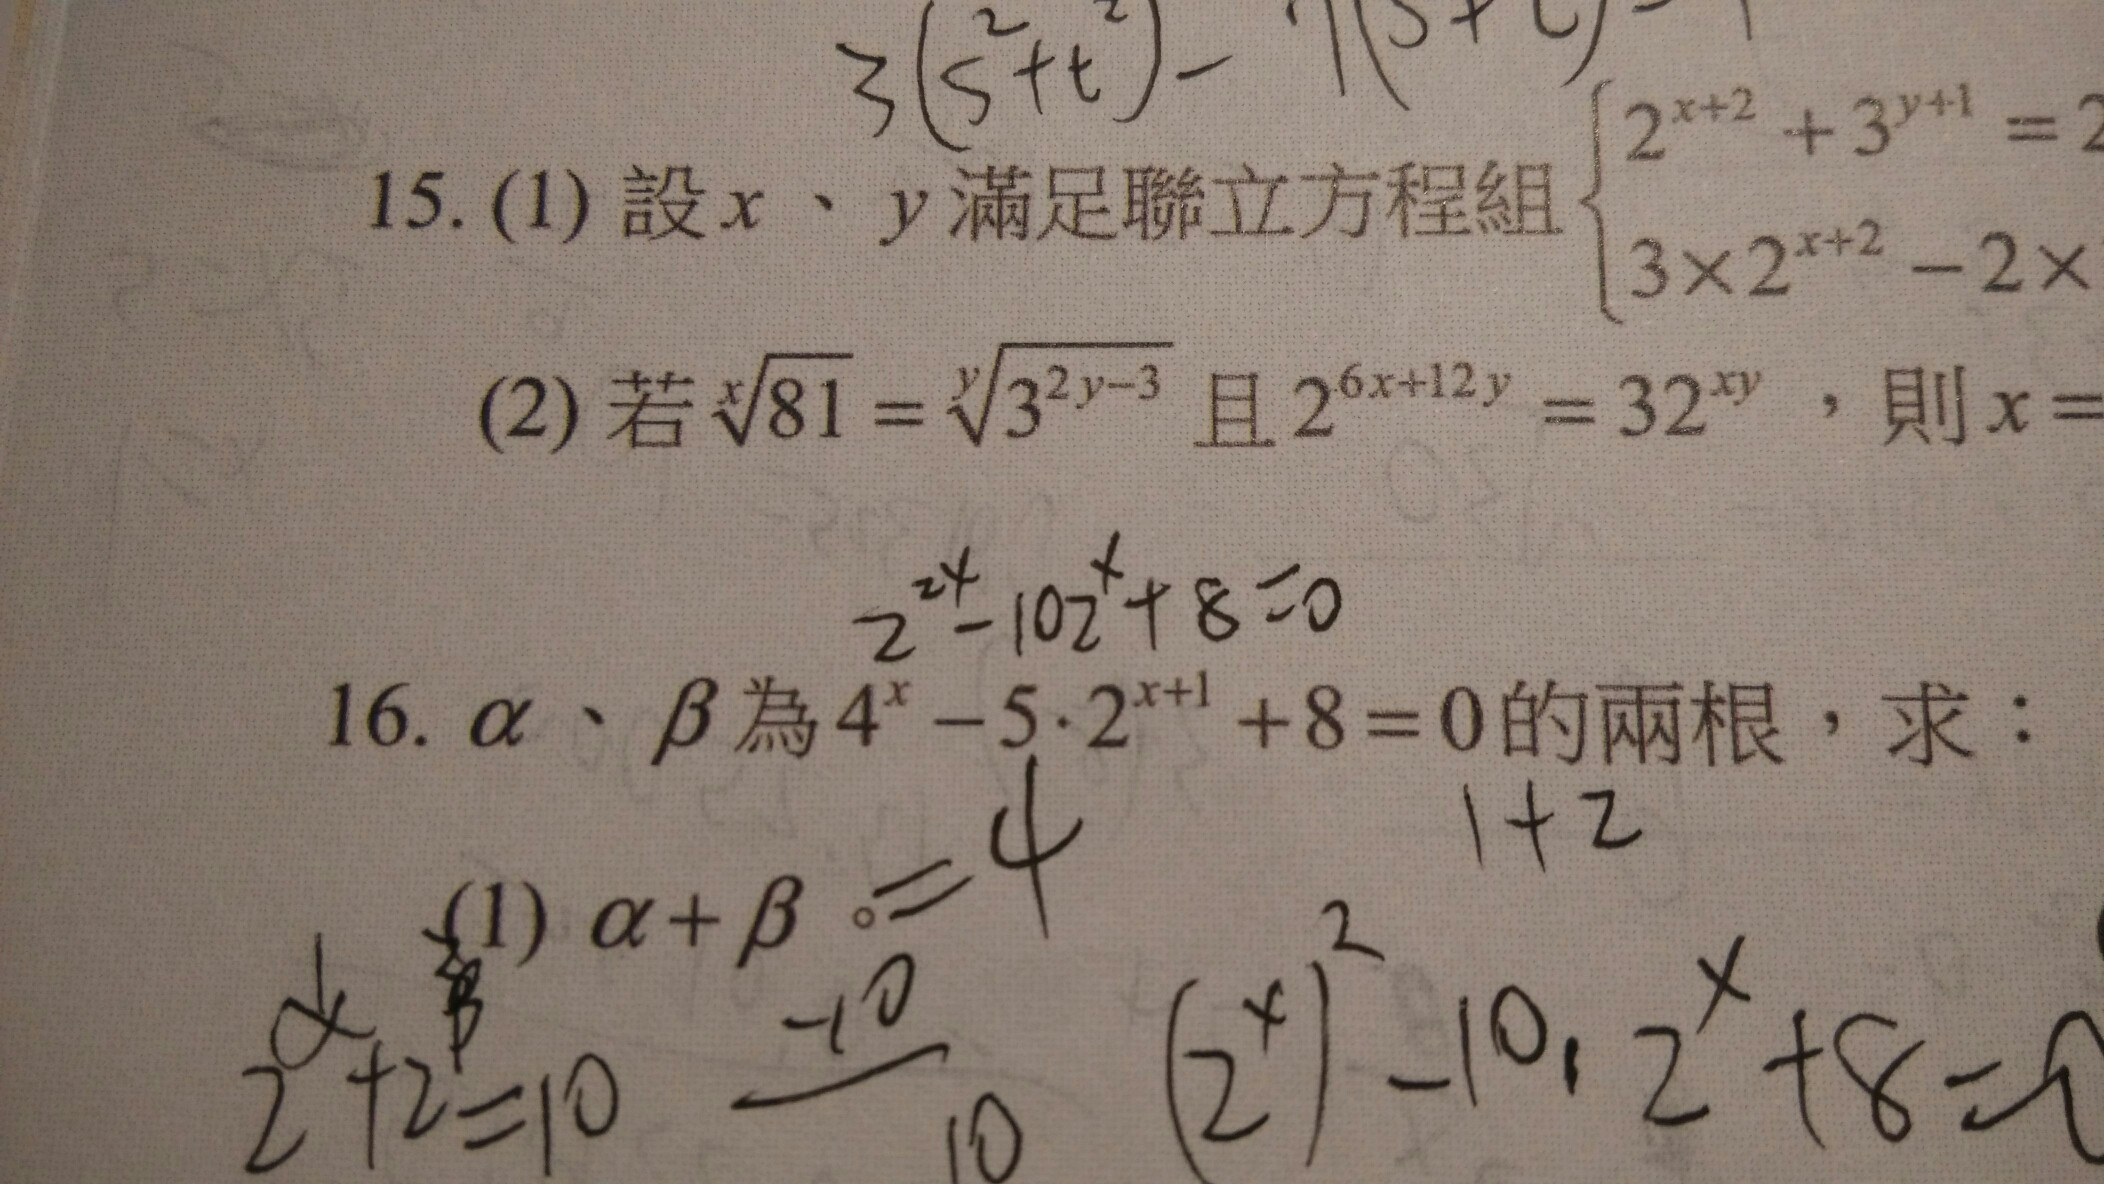 3(s²+t²)-7(s+t)-
15. (1) 設 x 、 y 滿足聯立方程組 { 2^{x+2} + 3^{y+1} = 2
3×2^{x+2} − 2×
(2) 若 \sqrt[x]{81} = \sqrt[y]{3^{2y−3}} 且 2^{6x+12y} = 32^{xy} ,則 x =
2^{2x}-10 2^x+8=0
16. α 、 β 為 4^x − 5·2^{x+1} + 8 = 0 的兩根,求:
1+2
(1) α + β 。=4
2^α+2^β=10
-10
10
(2^x)^2-10·2^x+8=0